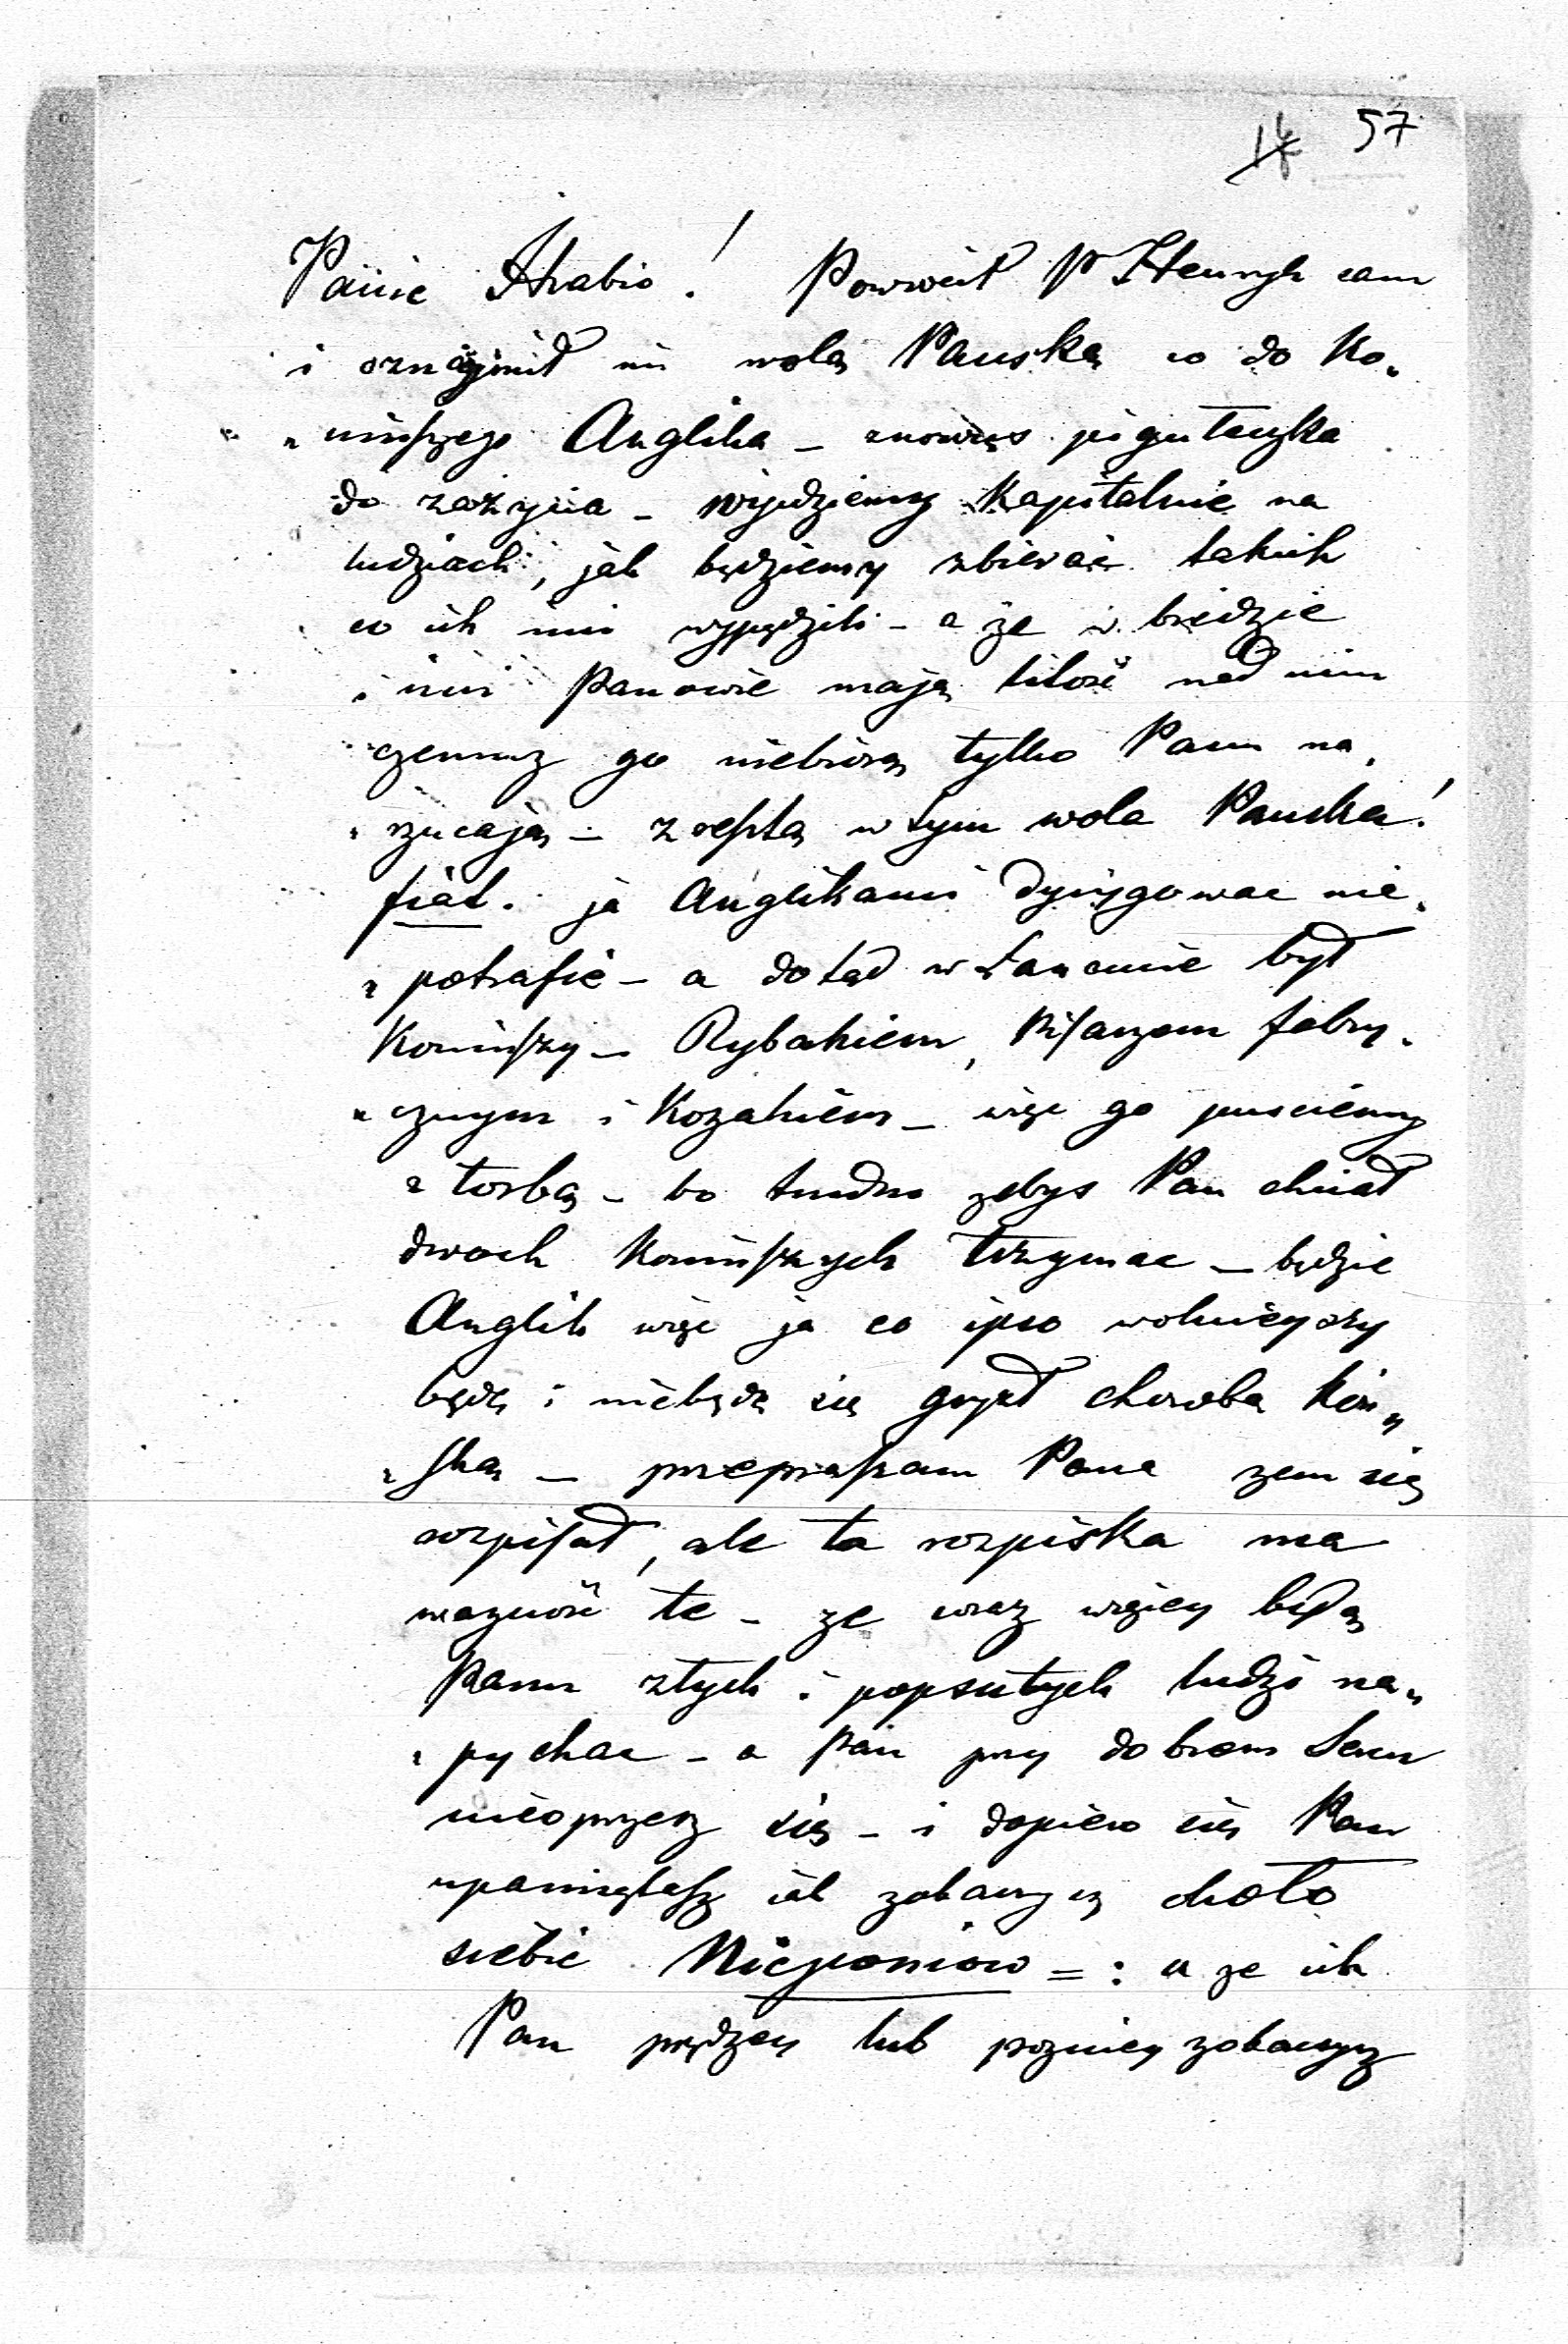 57
Panie Hrabio! Powrócił P Henryk cam
i oznajmił mi wolą Pańską co do Ko„
„niuszego Anglika – znowus pigułeczka
do zażycia – wyjdziemy kapitalnie na
ludziach, jak będziemy zbierać takich
co ich inni wypędzili – a że w biedzie
i inni Panowie mają litość nad nim
czemuz go niebiorą tylko Panu na„
„rzucają – z resztą w tym wola Pańska!
fiat. ja Anglikami dyrygowac nie„
„potrafię – a dotąd w Łancucie był
Koniuszy – Rybakiem, Pisarzem fabry„
„cznym i Kozakiem – więc go pusciemy
z torbą – bo trudno zebys Pan chciał
dwoch Koniuszych trzymac – będzie
Anglik więc ja eo ipso wolnieyszy
będę i niebędę się gryzł chorobą koń„
„ską – przepraszam Pana zem się
rozpisał, ale ta rozpiska ma
wazność te – ze coraz więcey będą
Panu złych i popsutych ludzi na„
„pychac – a Pan przy dobrem Sercu
nieoprzesz się – i dopiero się Pan
upamiętasz jak zobaczysz około
siebie Niczponiow =: a ze ich
Pan prędzey lub pozniey zobaczysz